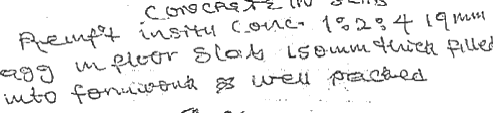 CONCRETE IN SLABS
Reinf't insitu conc. 1:2:4 19mm
agg in floor slab 150mm thick filled
into formwork & well packed